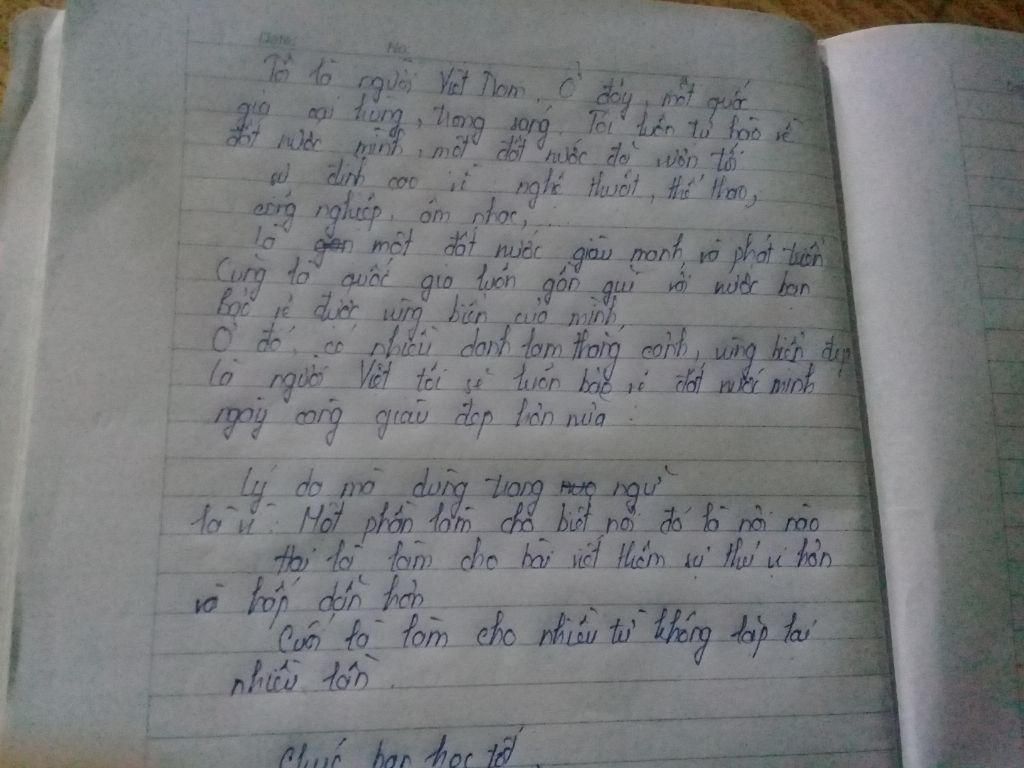 Date: No:
Tôi là người Việt Nam. Ở đây, một quốc
gia oai hùng, trong sáng. Tôi luôn tự hào về
đất nước mình, một đất nước đã vươn tới
sự đỉnh cao về nghệ thuật, thể thao,
công nghiệp, âm nhạc,...
Là một đất nước giàu mạnh và phát triển
Cũng là quốc gia luôn gần gũi với nước bạn
Bảo vệ được vùng biển của mình
Ở đó, có nhiều danh lam thắng cảnh, vùng biển đẹp
Là người Việt tôi sẽ luôn bảo vệ đất nước mình
ngày càng giàu đẹp hơn nữa.
Lý do mà dùng trạng ngữ
là vì: Một phần làm cho biết nơi đó là nơi nào
Hai là làm cho bài viết thêm sự thú vị hơn
và hấp dẫn hơn
Cuối là làm cho nhiều từ không lặp lại
nhiều lần.
Chúc bạn học tốt.